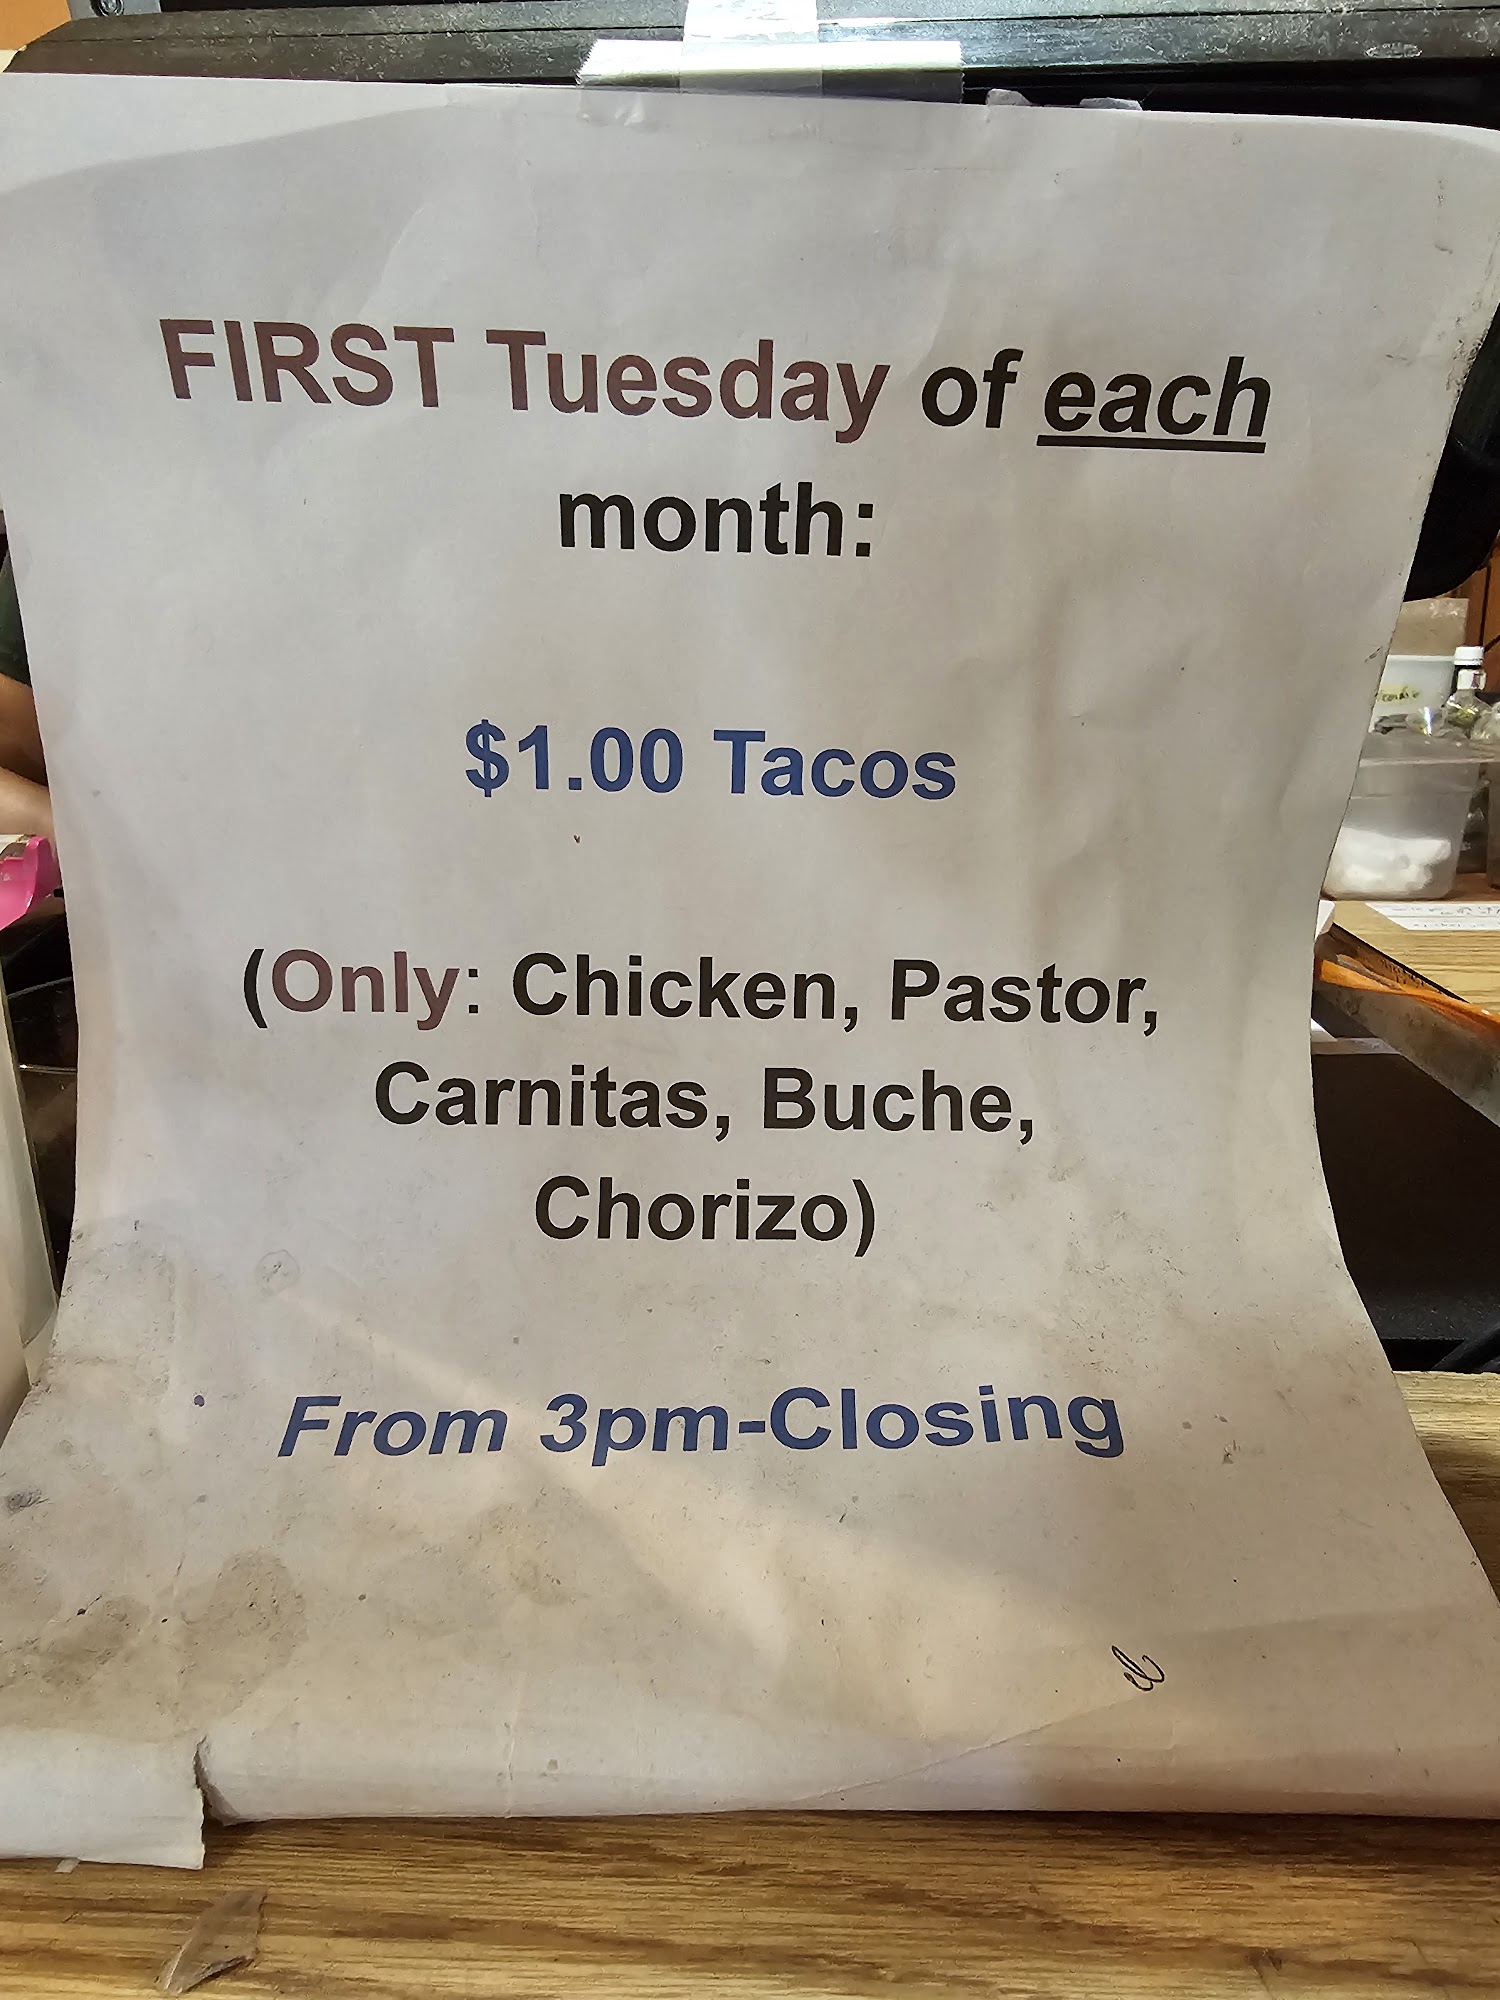 FIRST Tuesday of each
month:
$1.00 Tacos
(Only: Chicken, Pastor,
Carnitas, Buche,
Chorizo)
From 3pm-Closing